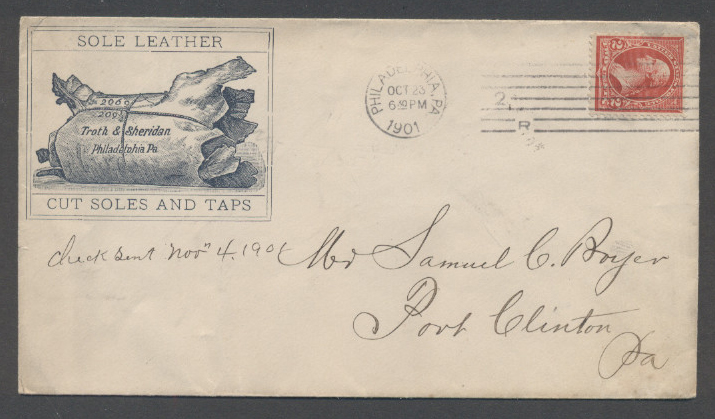 SOLE LEATHER
206
209
Troth & Sheridan
Philadelphia Pa
CUT SOLES AND TAPS
PHILADELPHIA, PA
OCT 23
6-39 PM
1901
2
R
2 2
check sent Nov" 4. 1901
Mr Samuel C. Boyer
Port Clinton
Pa